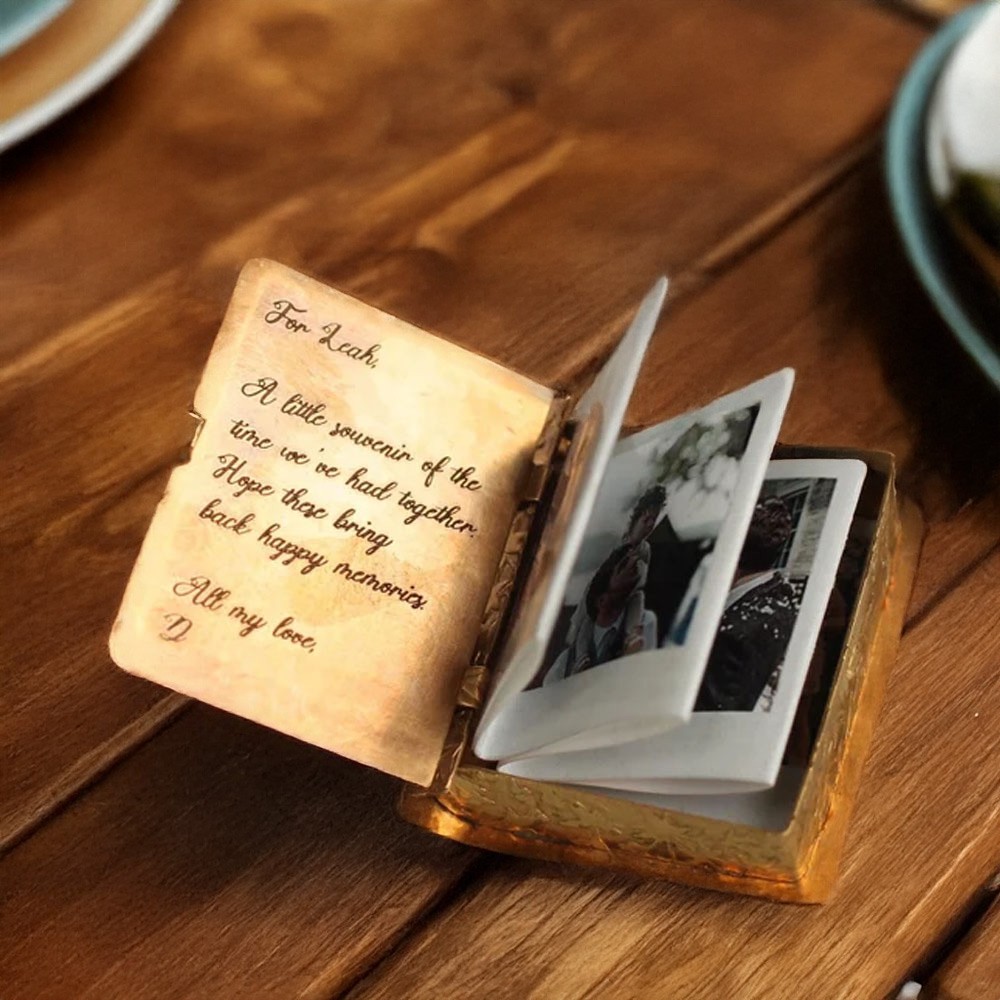 For Leah,
A little souvenir of the
time we've had together.
Hope these bring
back happy memories.
All my love,
D